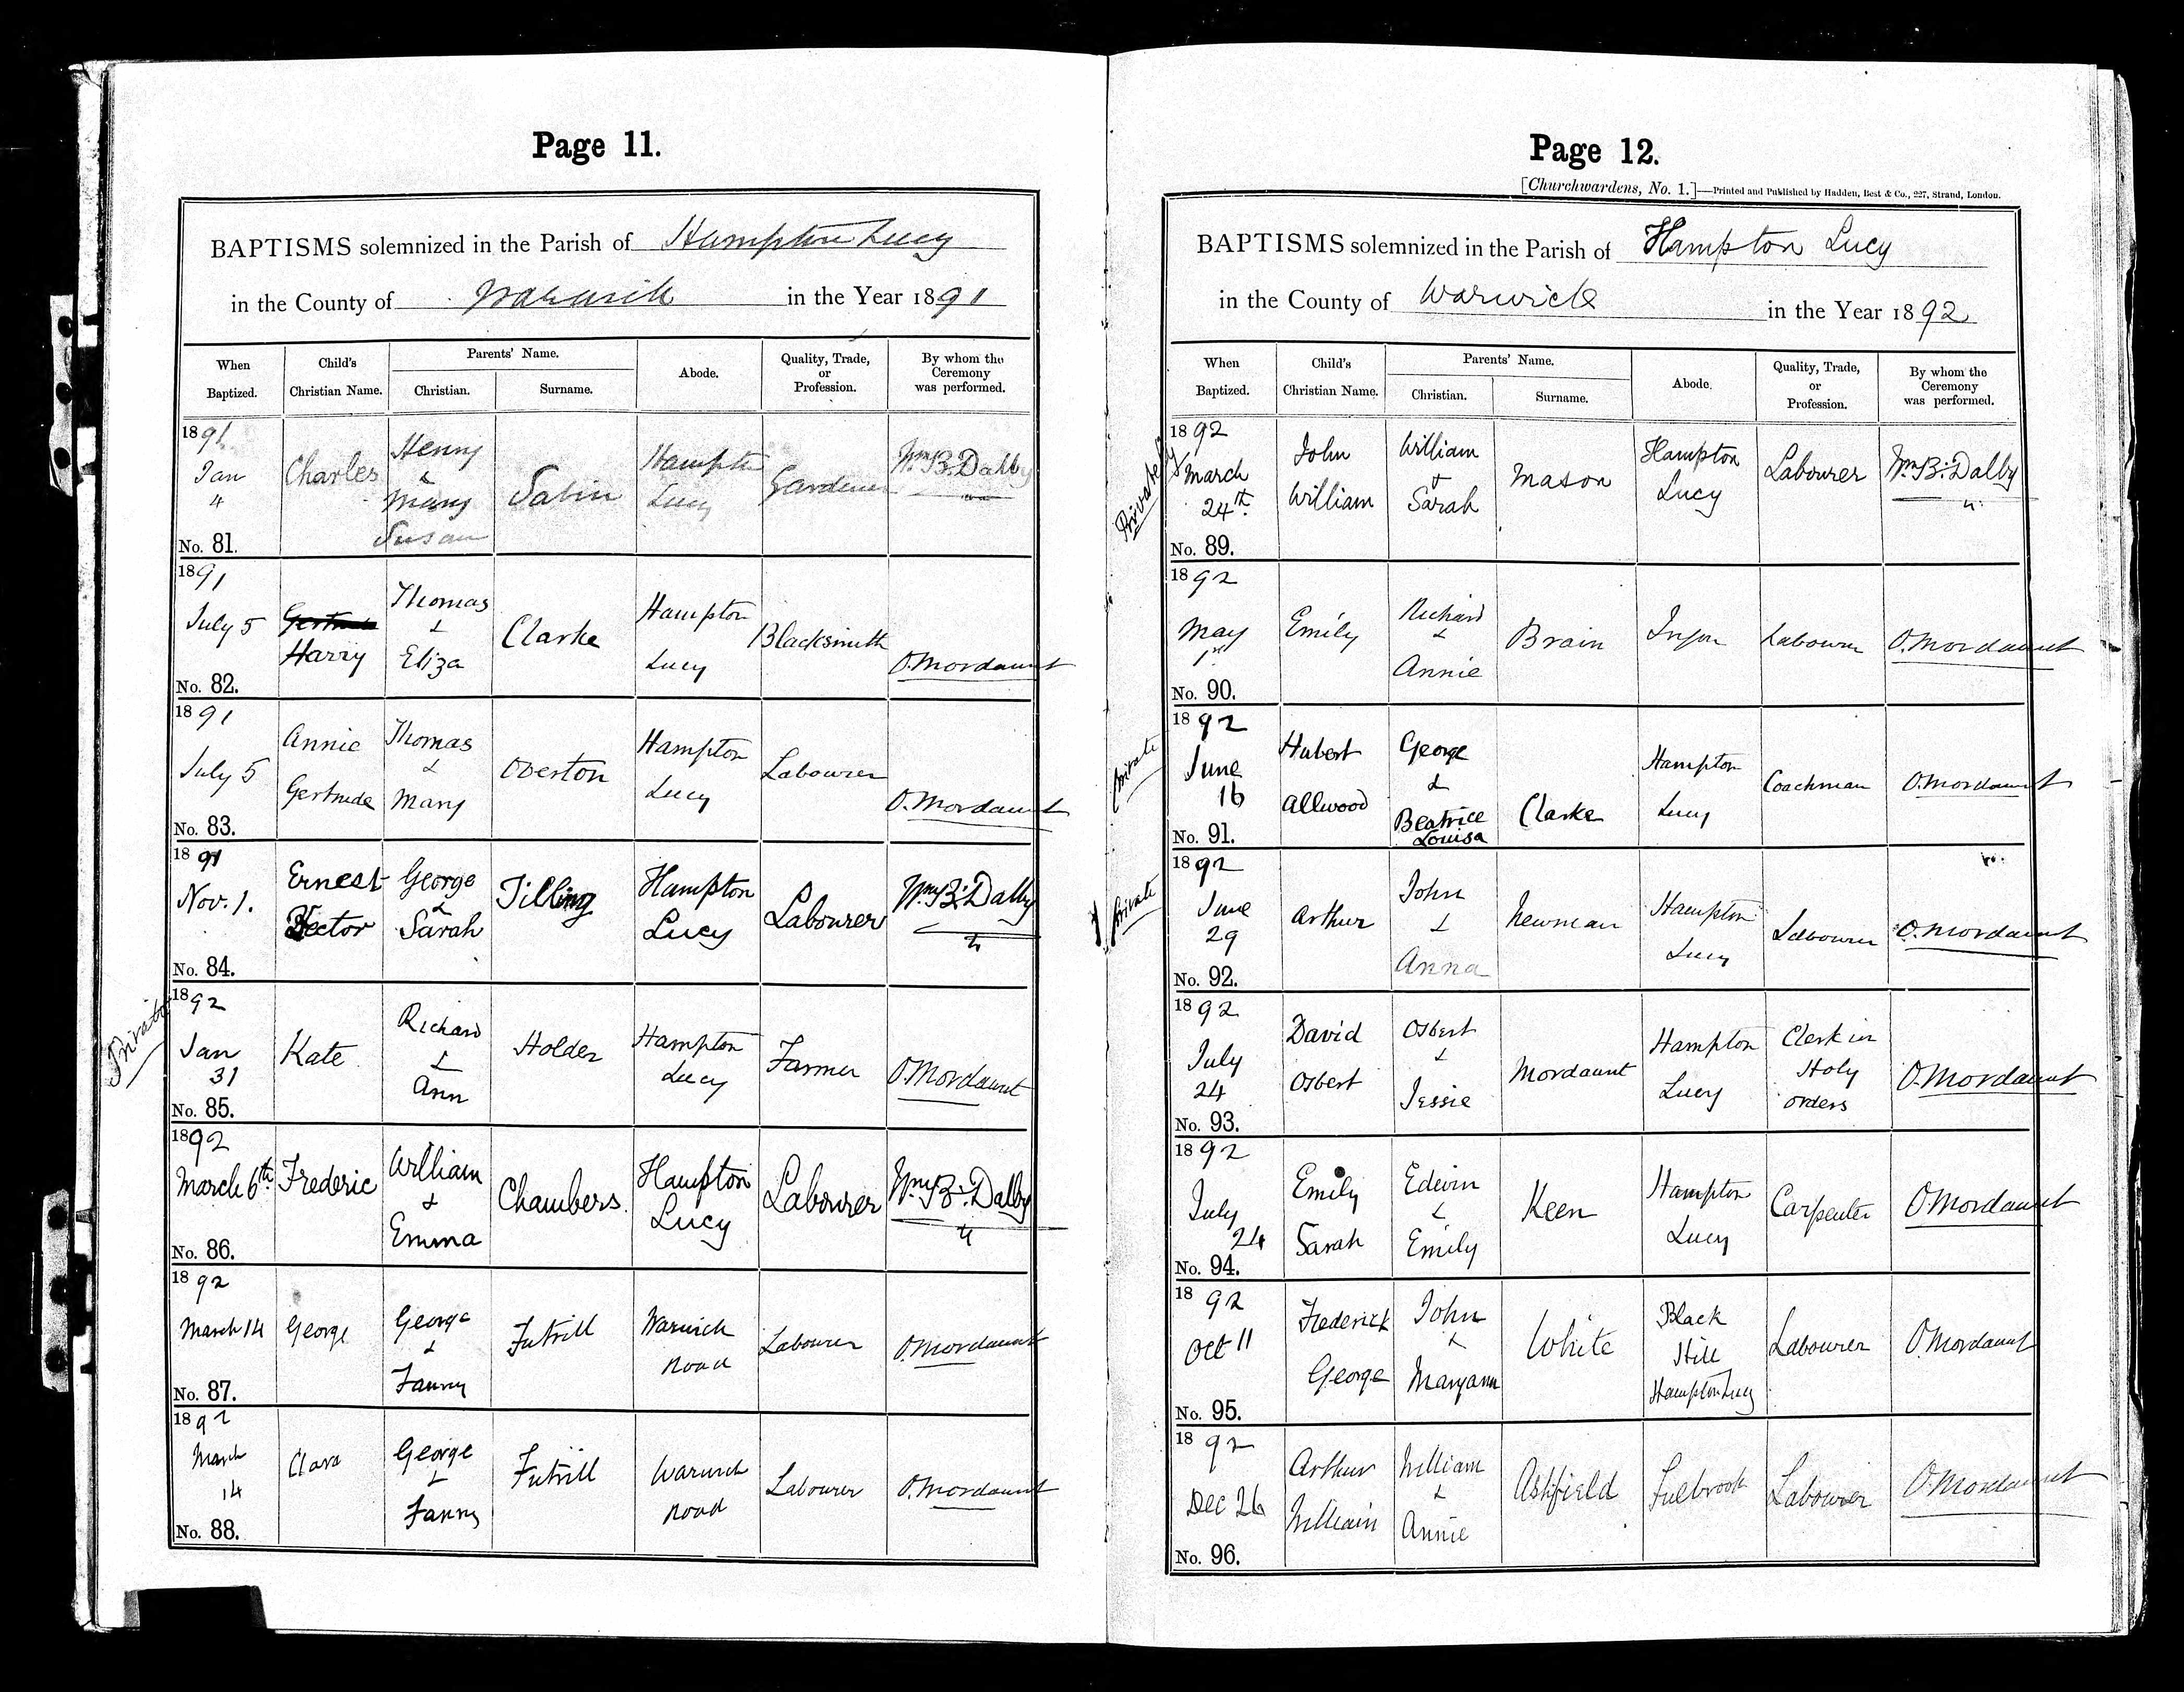 Page 11.
BAPTISMS solemnized in the Parish of Hampton Lucy
in the County of Warwick in the Year 1891
When Baptized. Child's Christian Name. Parents' Name. Christian. Surname. Abode. Quality, Trade, or Profession. By whom the Ceremony was performed.
1891 Jan 4 No. 81. Charles Henry & Mary Susan Sabin Hampton Lucy Gardener Wm. B. Dalby
1891 July 5 No. 82. Harry Thomas & Eliza Clarke Hampton Lucy Blacksmith O. Mordaunt
1891 July 5 No. 83. Annie Gertrude Thomas & Mary Overton Hampton Lucy Labourer O. Mordaunt
1891 Nov. 1. No. 84. Ernest Hector George & Sarah Tilling Hampton Lucy Labourer Wm. B. Dalby
Private
1892 Jan 31 No. 85. Kate Richard & Ann Holder Hampton Lucy Farmer O. Mordaunt
1892 March 6th No. 86. Frederic William & Emma Chambers. Hampton Lucy Labourer Wm. B. Dalby
1892 March 14 No. 87. George George & Fanny Futrill Warwick Road Labourer O. Mordaunt
1892 March 14 No. 88. Clara George & Fanny Futrill Warwick Road Labourer O. Mordaunt
Page 12.
[Churchwardens, No. 1.]—Printed and Published by Hadden, Best & Co., 227, Strand, London.
BAPTISMS solemnized in the Parish of Hampton Lucy
in the County of Warwick in the Year 1892
When Baptized. Child's Christian Name. Parents' Name. Christian. Surname. Abode. Quality, Trade, or Profession. By whom the Ceremony was performed.
Privately
1892 March 24th. No. 89. John William William & Sarah Mason Hampton Lucy Labourer Wm. B. Dalby
1892 May 1st No. 90. Emily Richard & Annie Brain Ingon Labourer O. Mordaunt
Private
1892 June 16 No. 91. Hubert Allwood George & Beatrice Louisa Clarke Hampton Lucy Coachman O. Mordaunt
Private
1892 June 29 No. 92. Arthur John & Anna Newman Hampton Lucy Labourer O. Mordaunt
1892 July 24 No. 93. David Osbert Osbert & Jessie Mordaunt Hampton Lucy Clerk in Holy orders O. Mordaunt
1892 July 24 No. 94. Emily Sarah Edwin & Emily Keen Hampton Lucy Carpenter O. Mordaunt
1892 Oct 11 No. 95. Frederick George John & Maryann White Black Hill Hampton Lucy Labourer O. Mordaunt
1892 Dec 26 No. 96. Arthur William William & Annie Ashfield Fulbrook Labourer O. Mordaunt